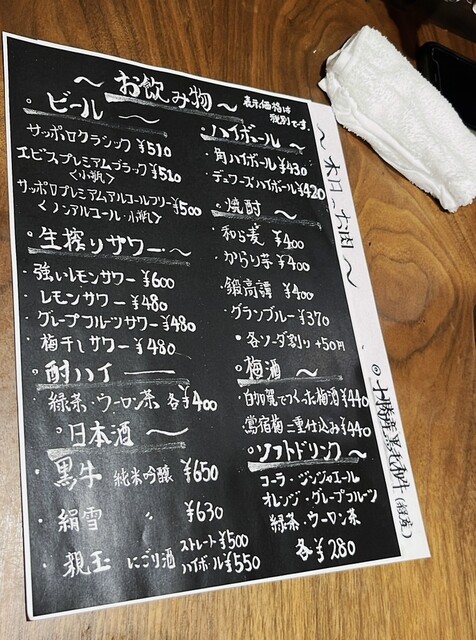 〜お飲み物〜
表示価格は
税別です。
。ビール 〜
サッポロクラシック ¥510
エビスプレミアムブラック ¥510
〈小瓶〉
サッポロプレミアムアルコールフリー ¥500
〈ノンアルコール・小瓶〉
。生搾りサワー 〜
・強いレモンサワー ¥600
・レモンサワー ¥480
・グレープフルーツサワー ¥480
・梅干しサワー ¥480
。酎ハイ
・緑茶・ウーロン茶 各¥400
。日本酒 〜
・黒牛 純米吟醸 ¥650
・絹雪 〃 ¥630
・親玉 にごり酒 ストレート ¥500
ハイボール ¥550
。ハイボール 〜
・角ハイボール ¥430
・デュワーズハイボール ¥420
。焼酎 〜
・和ら麦 ¥400
・からり芋 ¥400
・鍛高譚 ¥400
・グランブルー ¥370
・各ソーダ割り +50円
。梅酒 〜
・白加賀でつくった梅酒 ¥440
・鶯宿梅二重仕込み ¥440
。ソフトドリンク 〜
コーラ・ジンジャエール
オレンジ・グレープフルーツ
緑茶・ウーロン茶
各¥280
〜本日のお肉〜
◎十勝産黒毛和牛